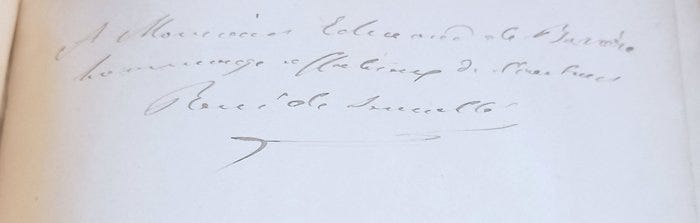 A Monsieur Edouard de Barrère
hommage affectueux de l'auteur
René de